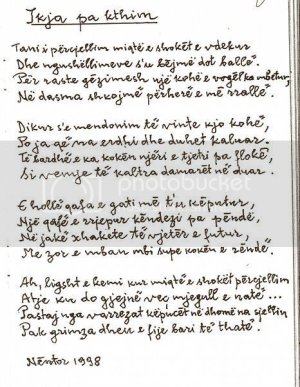 Ikja pa kthim
Tani i përcjellim miqtë e shokët e vdekur
Dhe ngushëllimeve s'u bëjmë dot ballë.
Për raste gëzimesh një kohë e vogël ka mbetur,
Në dasma shkojmë përherë e më rrallë.
Dikur s'e mendonim të vinte kjo kohë,
Po ja që na erdhi dhe duhet kaluar.
Të bardhë e ka kokën njëri e tjetri pa flokë,
Si vemje të kaltra damarët në duar.
E hollë qafa e gati më t'u këputur,
Një qafë e rrjepur këndezi pa pëndë,
Në jakë xhakete të vjetër e futur,
Me zor e mban mbi supe kokën e rëndë.
Ah, ligsht e kemi kur miqtë e shokët përcjellim
Atje ku do gjejnë veç mjegull e natë...
Pastaj nga varrezat këpucët në dhomë na sjellin
Pak grimza dheu e fije bari të thatë.
Nëntor 1998
photobucket